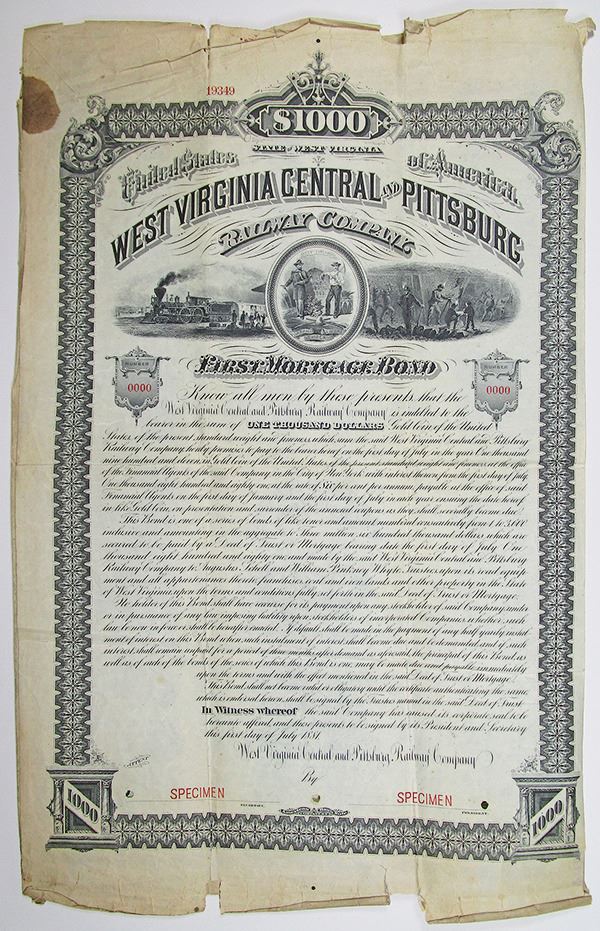 19349
$1000
STATE OF WEST VIRGINIA
United States of America.
WEST VIRGINIA CENTRAL AND PITTSBURG
RAILWAY COMPANY
FIRST MORTGAGE BOND
NUMBER
0000
NUMBER
0000
Know all men by these presents, that the
West Virginia Central and Pittsburg Railway Company is indebted to the
bearer in the sum of ONE THOUSAND DOLLARS Gold Coin of the United
States of the present standard weight and fineness, which sum the said West Virginia Central and Pittsburg
Railway Company hereby promises to pay to the bearer hereof on the first day of July in the year One thousand
nine hundred and eleven in Gold Coin of the United States of the present standard weight and fineness at the office
of the Financial Agents of the said Company in the City of New York with interest thereon from the first day of July
One thousand eight hundred and eighty one, at the rate of SIX per cent per annum, payable at the office of said
Financial Agents on the first day of January and the first day of July in each year ensuing the date hereof
in like Gold Coin, on presentation and surrender of the annexed coupons as they shall severally become due.
This Bond is one of a series of bonds of like tenor and amount, numbered consecutively from 1 to 3,000
inclusive and amounting in the aggregate to Three million dollars which are
secured to be paid by a Deed of Trust or Mortgage bearing date the first day of July One
thousand eight hundred and eighty one, made by the said West Virginia Central and Pittsburg
Railway Company to Augustus Schell and William Pinkney Whyte, Trustees, upon its road equip-
ment and all appurtenances thereto, franchises, coal and iron lands and other property in the State
of West Virginia, upon the terms and conditions fully set forth in the said Deed of Trust or Mortgage.
No holder of this Bond, shall have recourse for its payment upon any stockholder of said Company, under
or in pursuance of any law imposing liability upon stockholders of incorporated Companies whether such
law be now in force or shall be hereafter enacted. If default shall be made in the payment of any half yearly instal-
ment of interest on this Bond when such instalment of interest shall become due and be demanded and if such
interest shall remain unpaid for a period of three months after demand as aforesaid, the principal of this Bond, as
well as of each of the bonds of the series of which this Bond is one, may be made due and payable immediately
upon the terms and with the effect mentioned in the said Deed of Trust or Mortgage.
This Bond shall not become valid or obligatory until the certificate authenticating the same,
which is endorsed hereon, shall be signed by the Trustees named in the said Deed of Trust.
In Witness whereof the said Company has caused its corporate seal to be
hereunto affixed, and these presents to be signed by its President and Secretary
this first day of July 1881.
West Virginia Central and Pittsburg Railway Company
By
SPECIMEN SPECIMEN
SECRETARY. PRESIDENT.
1000 1000